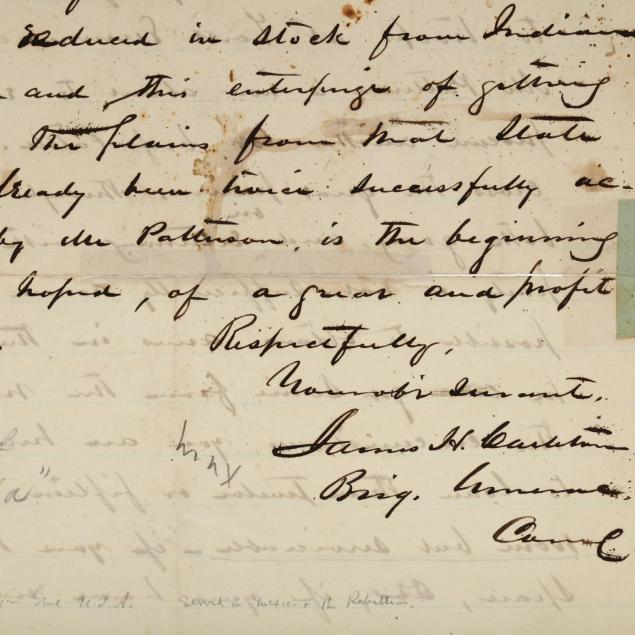 reduced in stock from Indian
and this enterprize of getting
the plains from that State
lready been twice successfully ac-
by Mr Patterson, is the beginning
hoped, of a great and profit
Respectfully,
Your obt servant,
James H. Carleton
Brig. General
Com'd
"a"
U.S.A. Served in Mexico & the Rebellion.